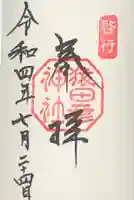 啓行
奉拝
猿田彦神社
令和四年七月二十四日